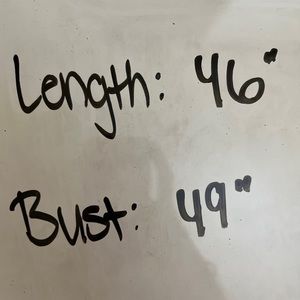 Length: 46"
Bust: 49"